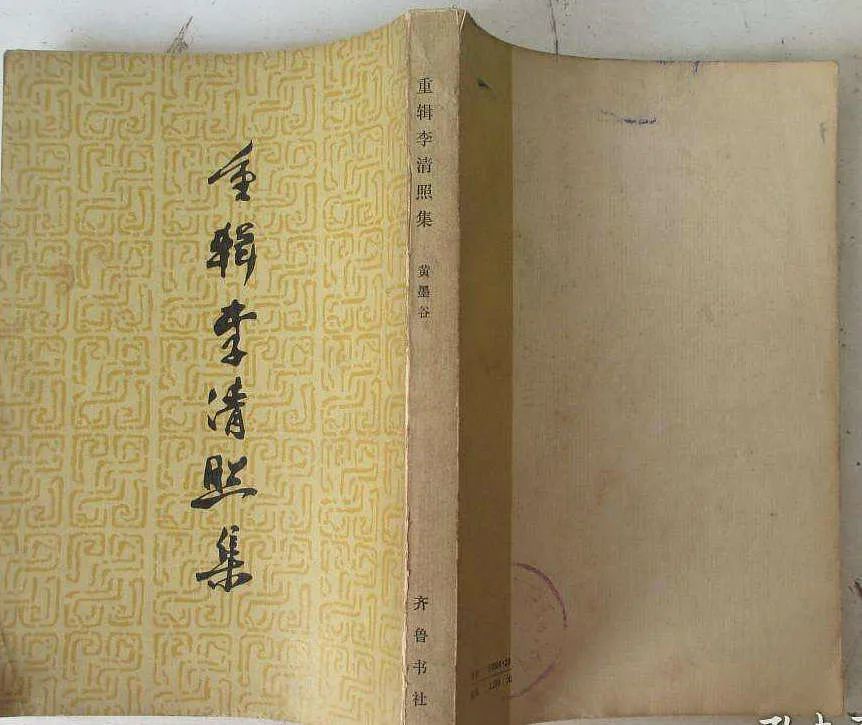 重辑李清照集
重辑李清照集
黄墨谷
齐鲁书社